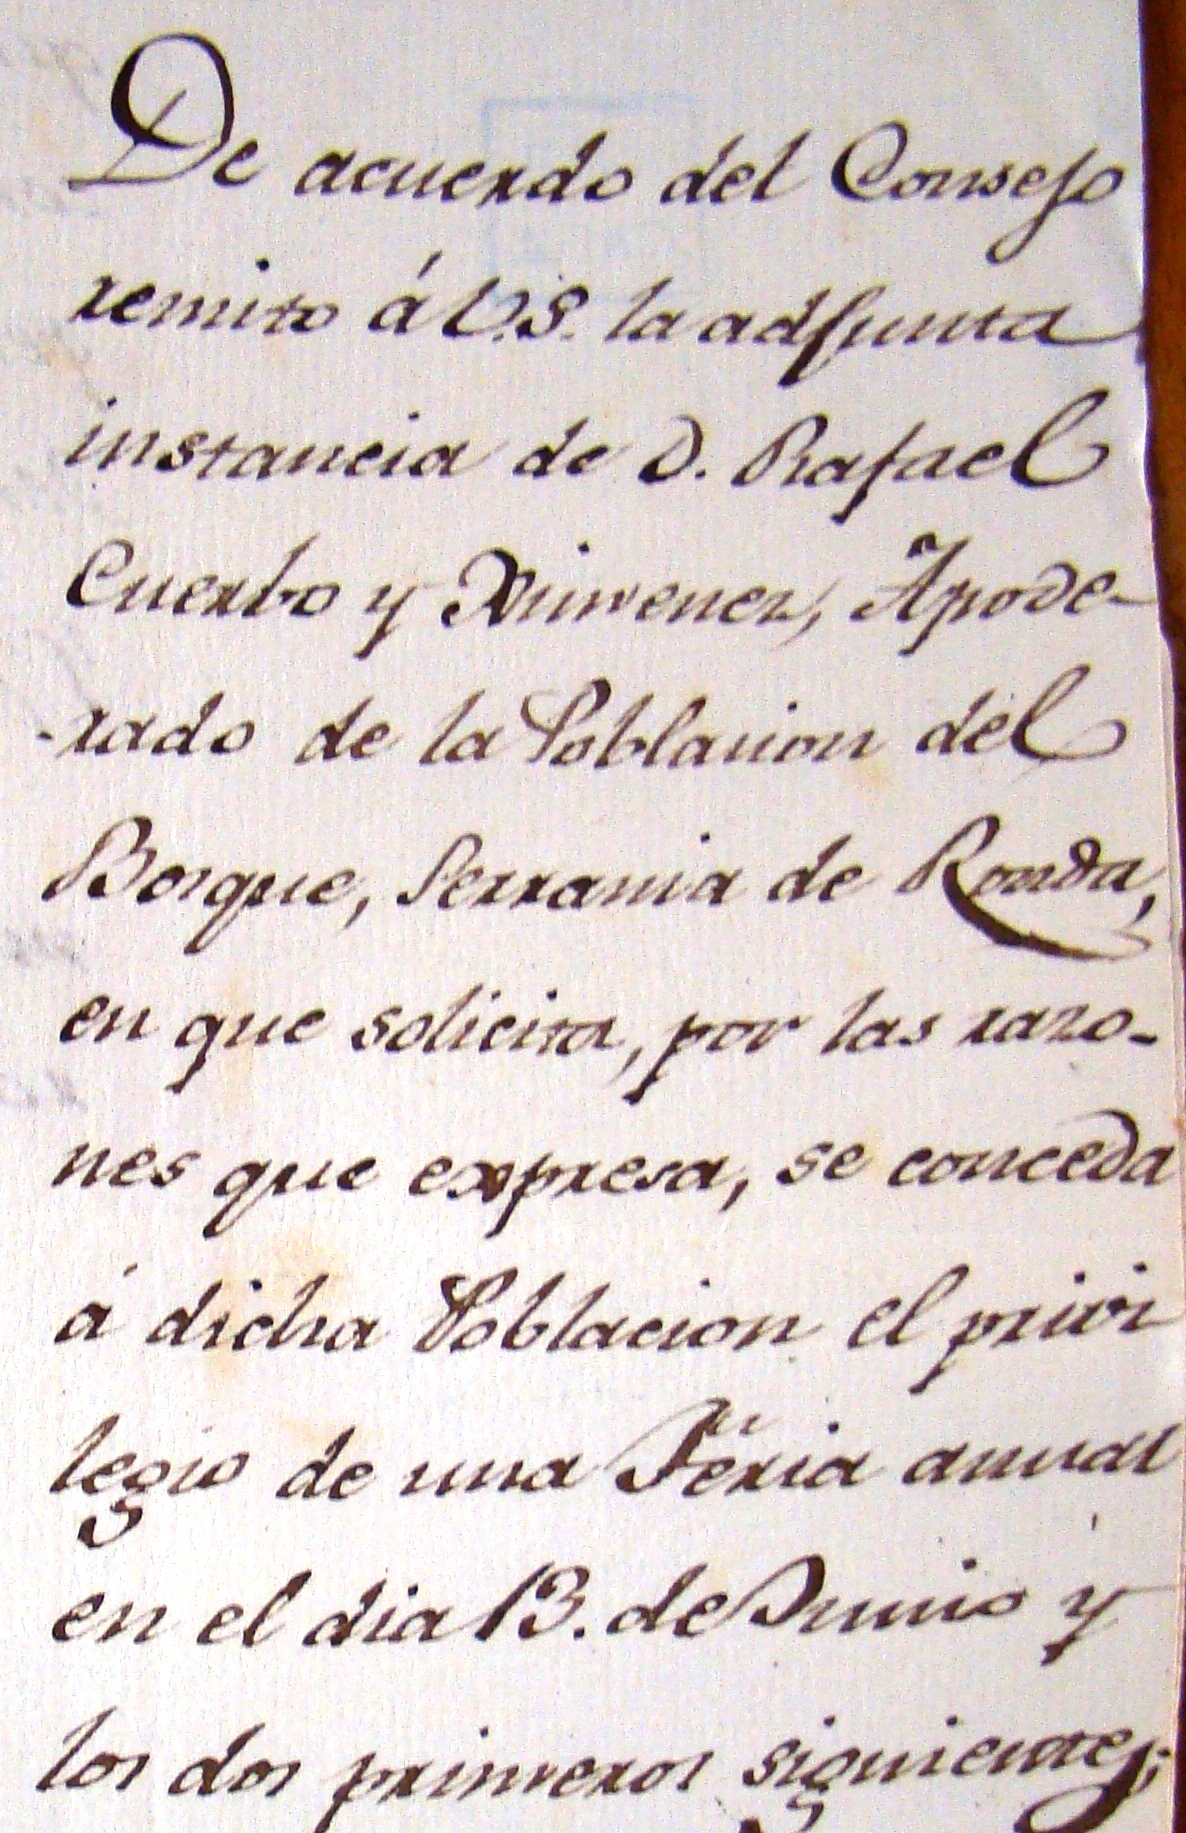 De acuerdo del Consejo
remito á V.S. la adjunta
instancia de D. Rafael
Cuerbo y Ximenez, Apode-
-rado de la Poblacion del
Bosque, Serrania de Ronda,
en que solicita, por las razo-
nes que expresa, se conceda
á dicha Poblacion el privi
legio de una Feria anual
en el dia 13. de Junio y
los dos primeros siguientes;